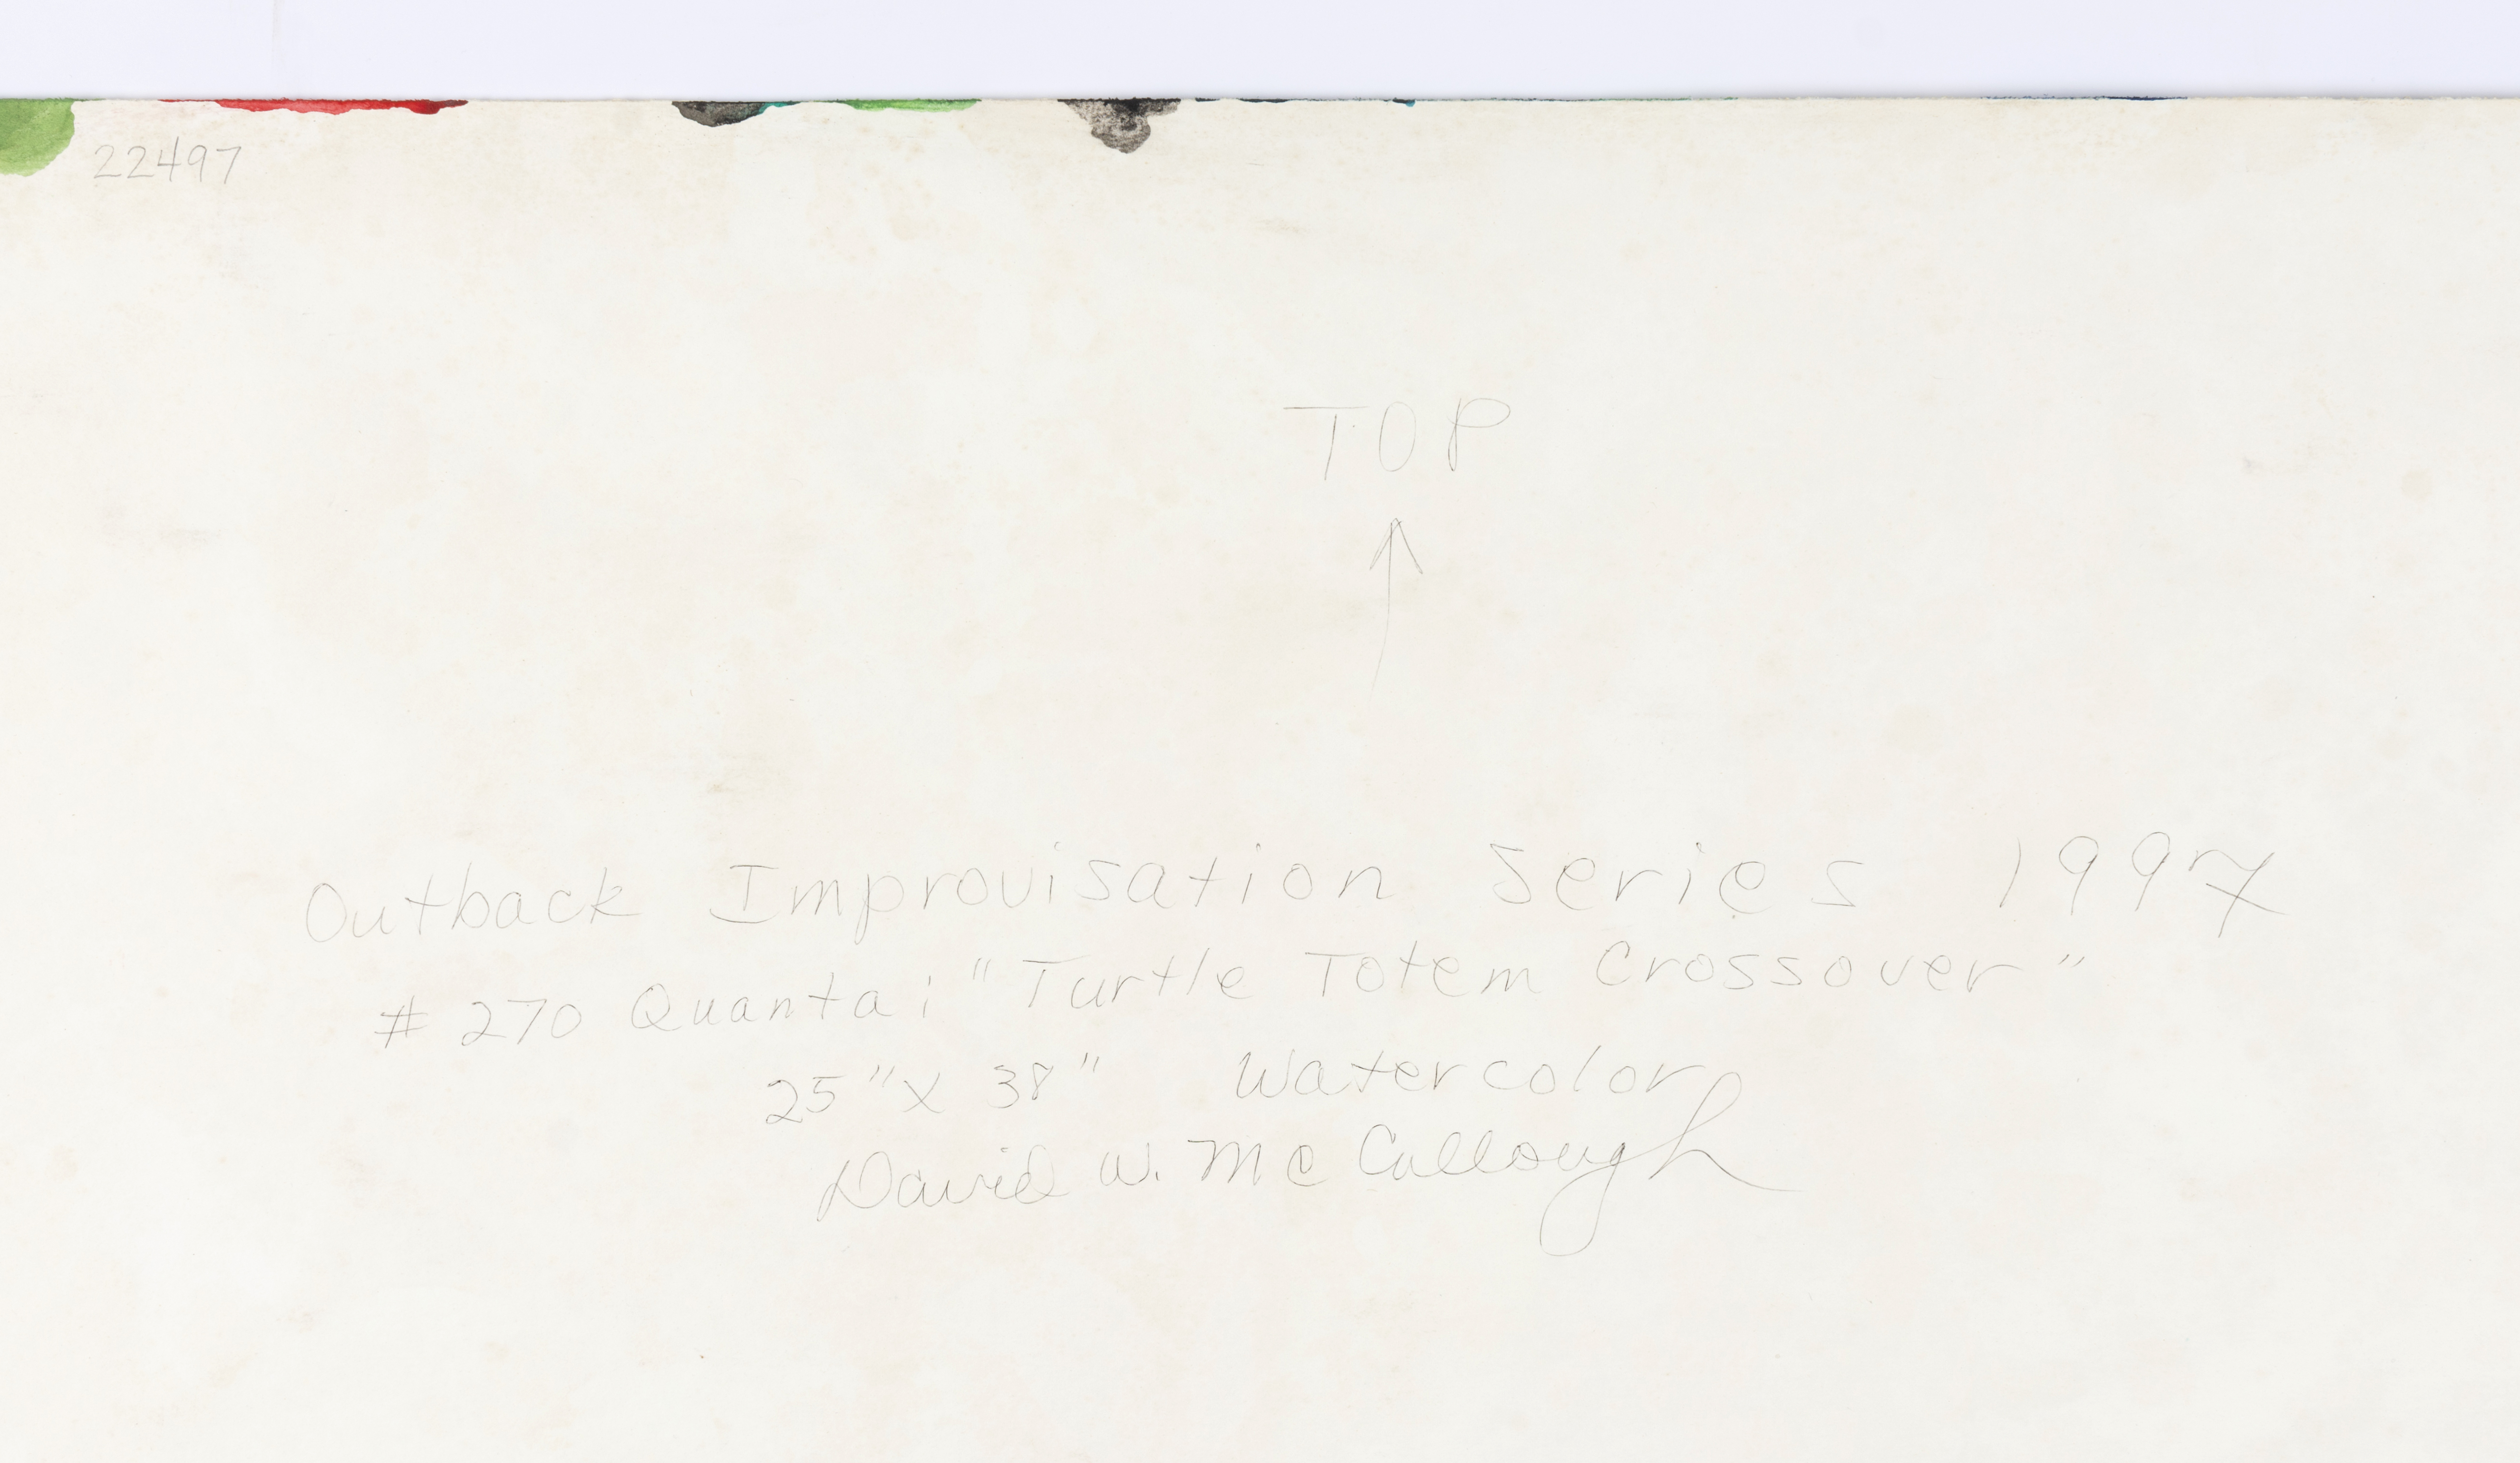 22497
TOP
Outback Improvisation Series 1997
# 270 Quanta; "Turtle Totem Crossover"
25" X 38" Watercolor
David W. McCullough